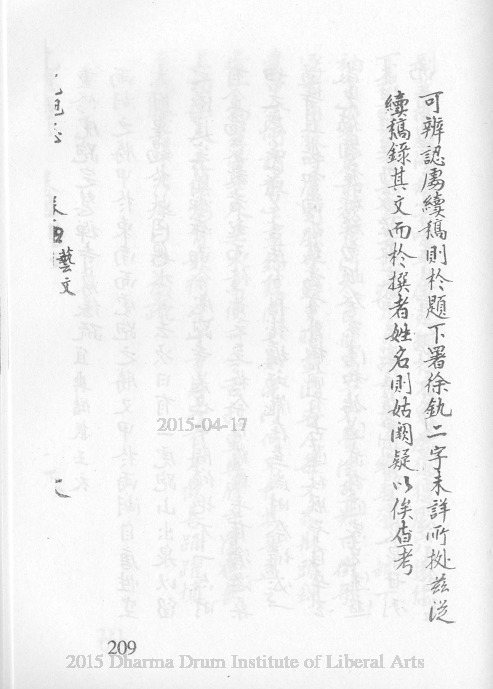 可辨認處續稿則於題下署徐釚二字未詳所據茲從
續稿錄其文而於撰者姓名則姑闕疑以俟查考
藝文
2015-04-17
209
2015 Dharma Drum Institute of Liberal Arts